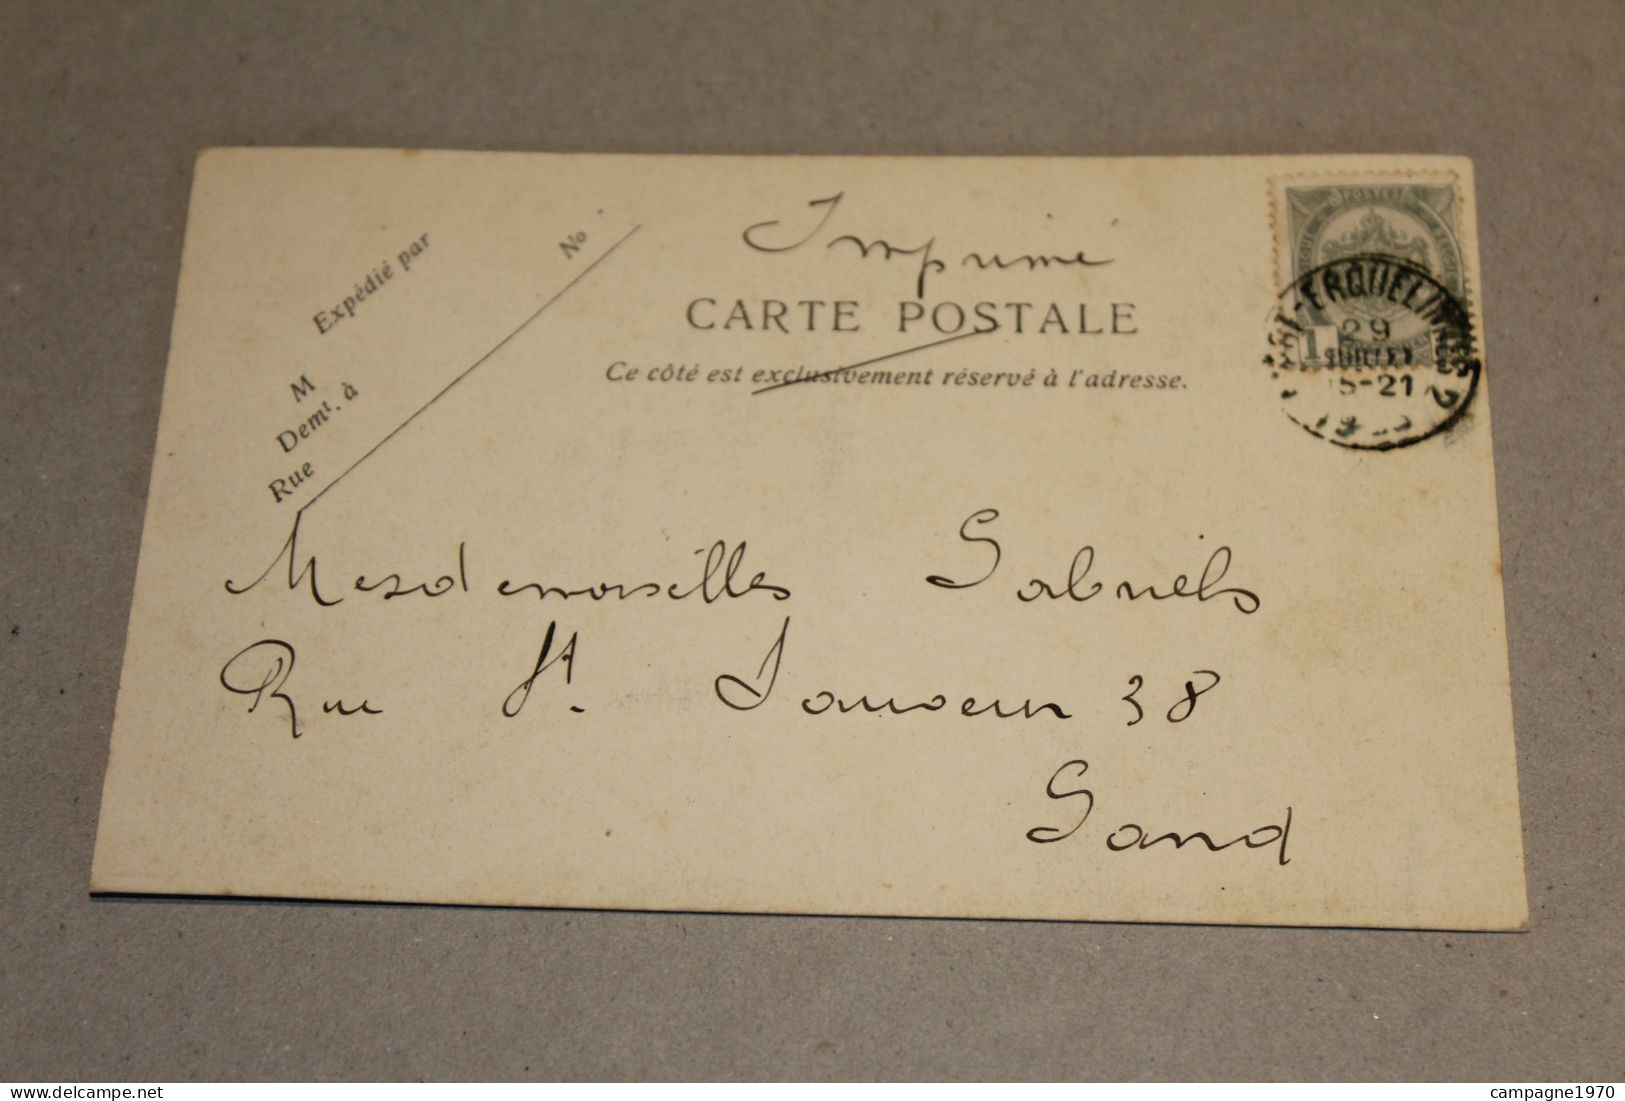 Imprimé
CARTE POSTALE
Ce côté est exclusivement réservé à l'adresse.
Expédié par
M
Demt. à
Rue
No
POSTES
ERQUELINNES 2
29
JUILLET
15-21
1
Mesdemoiselles Gabriels
Rue St. Sauveur 38
Gand
delcampe.net
campagne1970